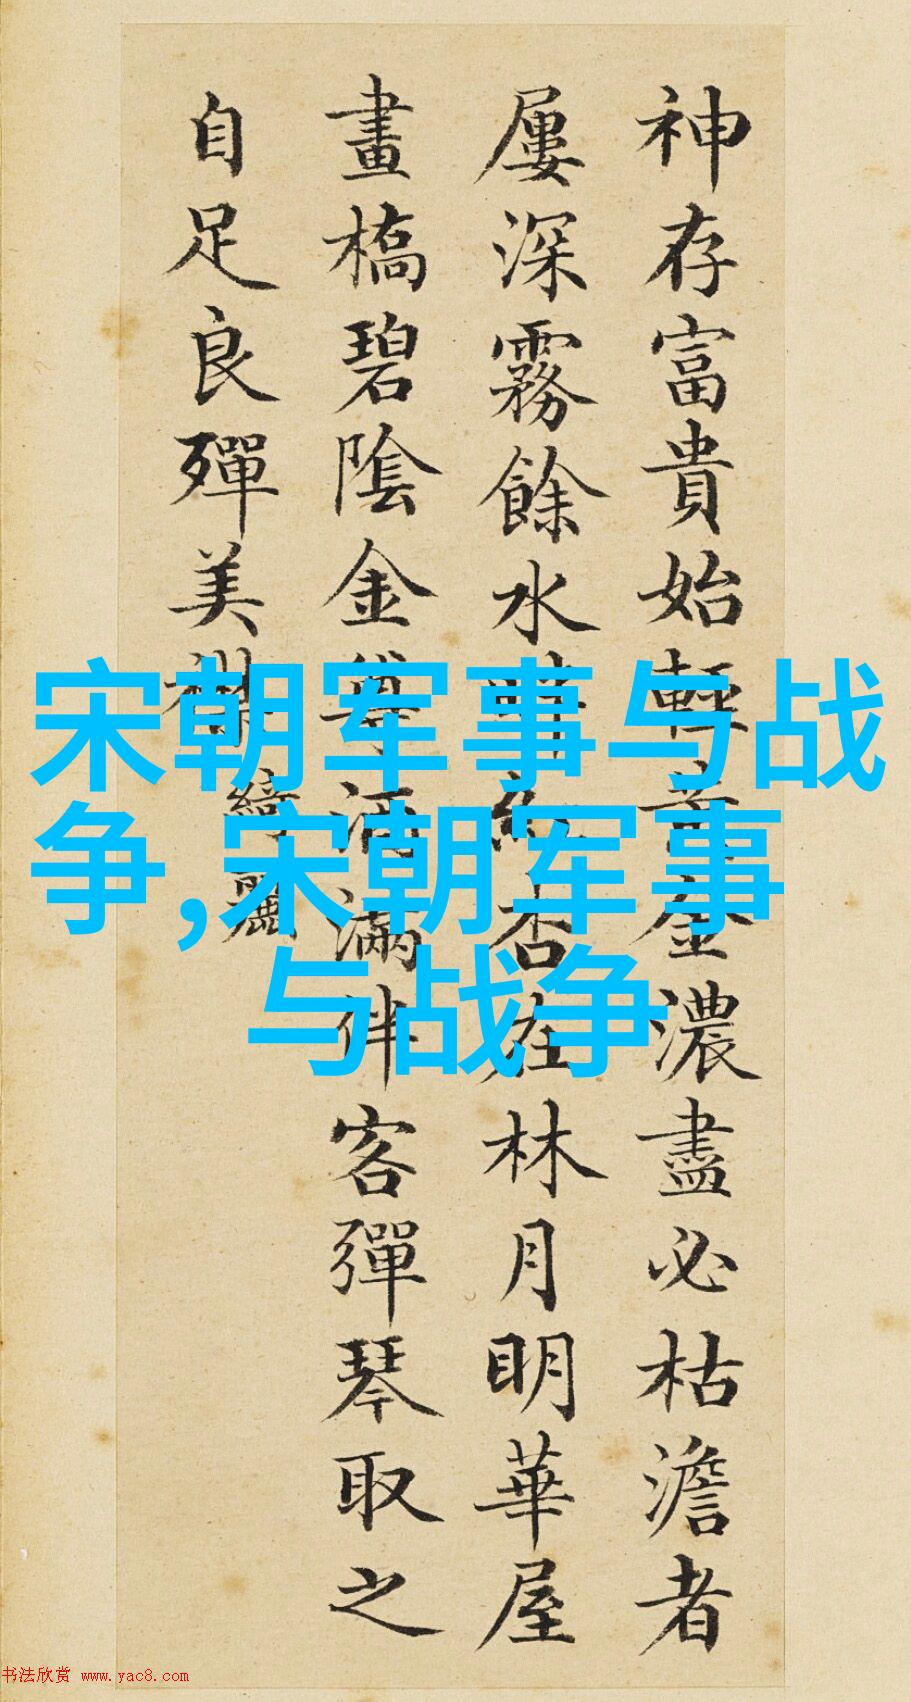 神存富貴始輕金濃盡必枯澹者
屢深霧餘水杏在林月明華屋
畫橋碧陰金酒滿伴客彈琴取之
自足良殫美襟綺麗
宋朝军事与战
争,宋朝军事
与战争
书法欣赏 www.yac8.com